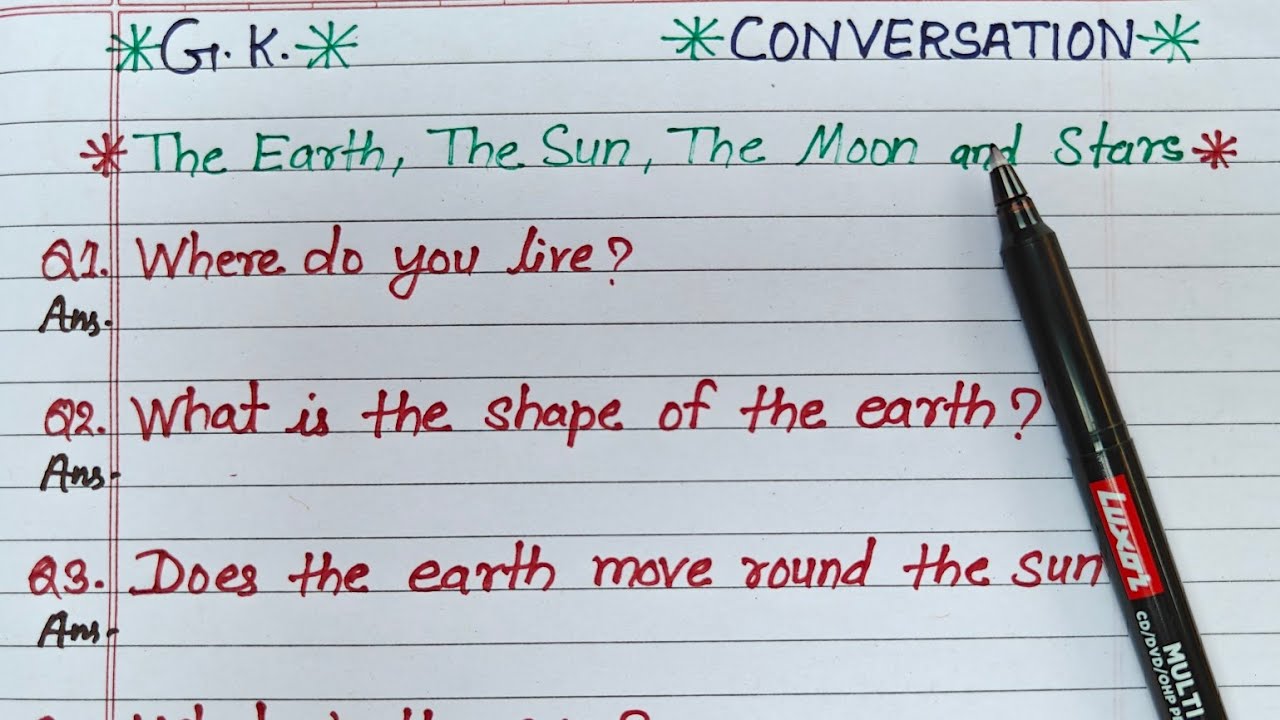 *G.K.* *CONVERSATION*
*The Earth, The Sun, The Moon and Stars*
Q1. Where do you live?
Ans.
Q2. What is the shape of the earth?
Ans-
Q3. Does the earth move round the sun
Ans-
LUXOR
MULTI
CD/DVD/OHP